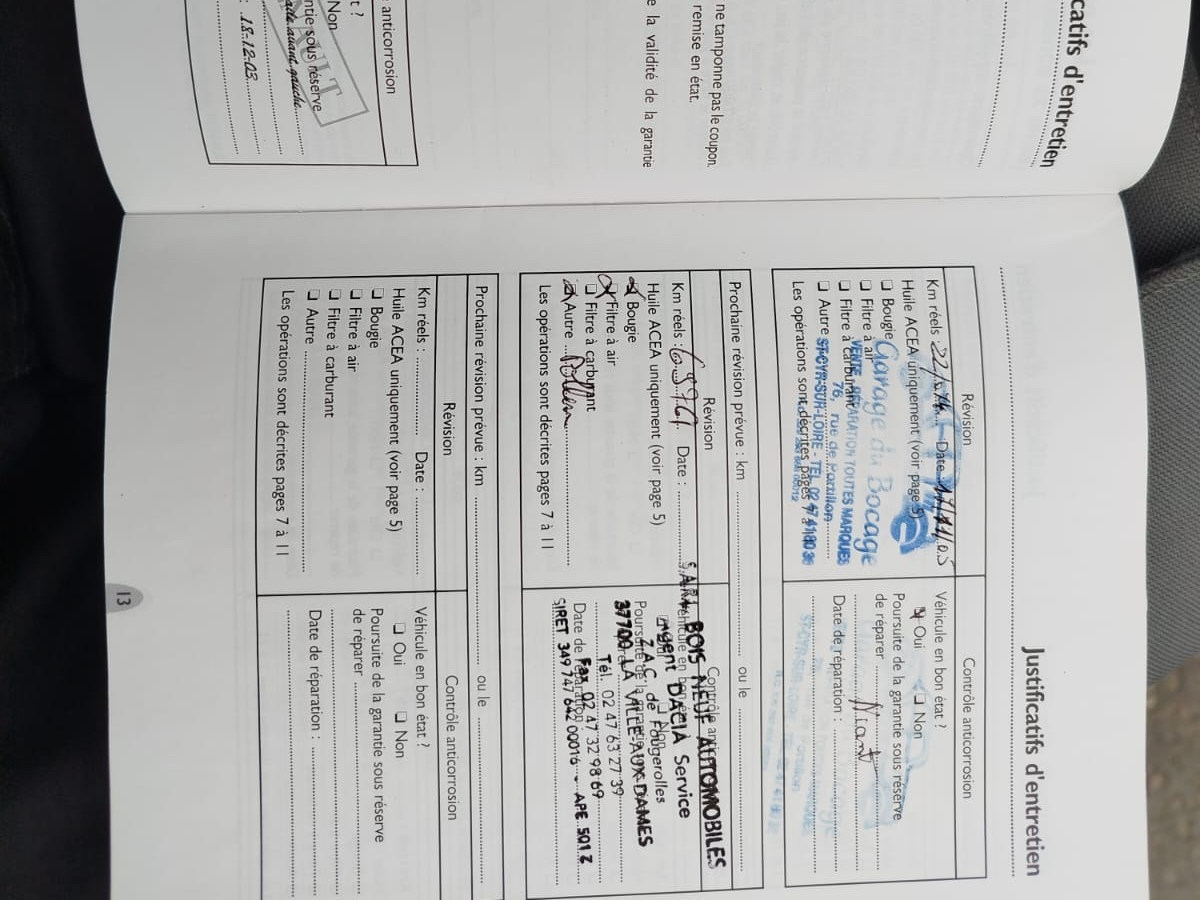 catifs d'entretien
ne tamponne pas le coupon.
remise en état.
e la validité de la garantie
anticorrosion
t ?
Non
ntie sous réserve
avant gauche
: 18-12-03
Justificatifs d'entretien
Révision
Contrôle anticorrosion
Km réels : Date
Huile ACEA uniquement (voir page 5)
❑ Bougie
❑ Filtre à air
❑ Filtre à carburant
❑ Autre
Les opérations sont décrites pages 7 à
Garage du Bocage
VENTE - RÉPARATION TOUTES MARQUES
76, rue de Portillon
ST-CYR-SUR-LOIRE - TEL 02 47 41 80 36
Véhicule en bon état ?
Oui ❑ Non
Poursuite de la garantie sous réserve
de réparer Néant
Date de réparation :
Prochaine révision prévue : km ou le
Révision
Contrôle
Km réels : 69761 Date :
Huile ACEA uniquement (voir page 5)
Bougie
Filtre à air
❑ Filtre à carburant
Autre Pollen
Les opérations sont décrites pages 7 à 11
S.A.R.L BOIS NEUF AUTOMOBILES
Agent DACIA Service
Z.A.C de Fougerolles
37700 LA VILLE-AUX-DAMES
Tél. 02 47 63 27 39
Fax 02 47 32 98 69
SIRET 349 747 642 00016 - APE 501 Z
Prochaine révision prévue : km ou le
Révision
Contrôle anticorrosion
Km réels : Date :
Huile ACEA uniquement (voir page 5)
❑ Bougie
❑ Filtre à air
❑ Filtre à carburant
❑ Autre
Les opérations sont décrites pages 7 à 11
Véhicule en bon état ?
❑ Oui ❑ Non
Poursuite de la garantie sous réserve
de réparer
Date de réparation :
13